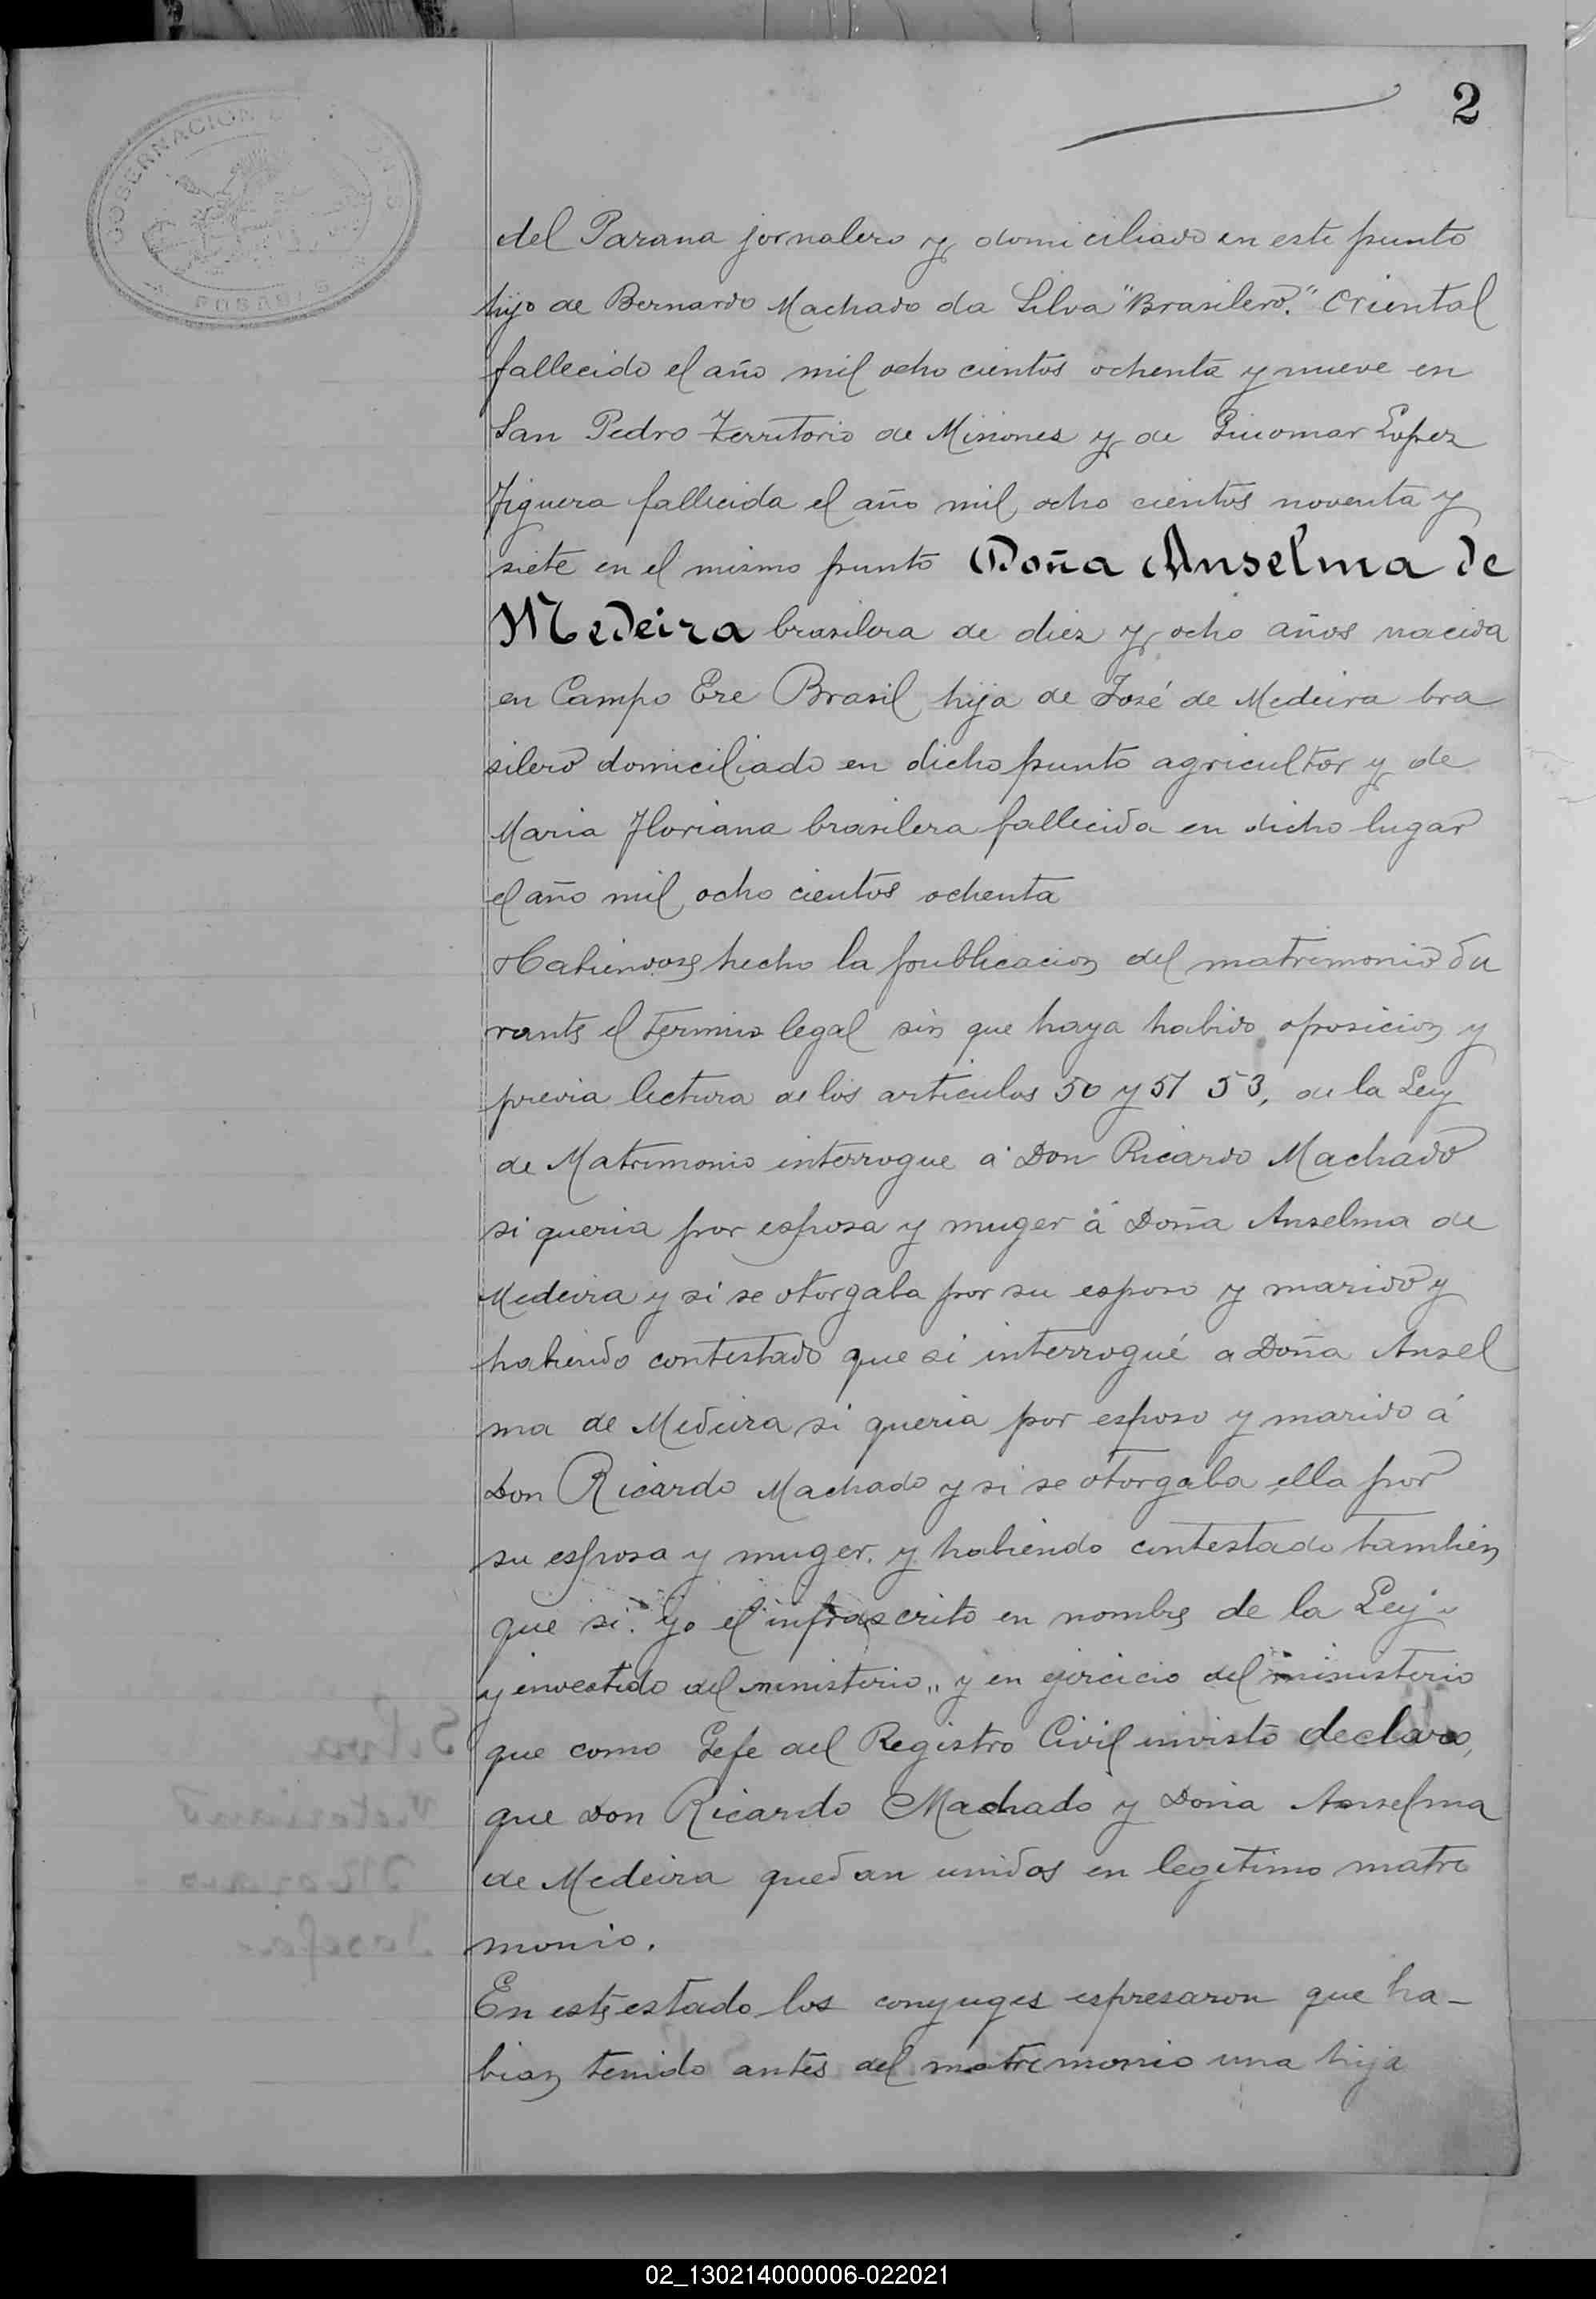 2
GOBERNACION
POSADAS
del Parana jornalero y domiciliado en este punto
hijo de Bernardo Machado da Silva "Brasilero." Oriental
fallecido el año mil ocho cientos ochenta y nueve en
San Pedro Territorio de Misiones y de Guiomar Lopez
Figuera fallecida el año mil ocho cientos noventa y
siete en el mismo punto Doña Anselma de
Medeira brasilera de diez y ocho años nacida
en Campo Ere Brasil hija de José de Medeira bra
silero domiciliado en dicho punto agricultor y de
Maria Floriana brasilera fallecida en dicho lugar
el año mil ocho cientos ochenta
Habiendose hecho la publicacion del matrimonio du
rante el termino legal sin que haya habido oposicion y
previa lectura de los articulos 50 y 51 53, de la Ley
de Matrimonio interrogue á Don Ricardo Machado
si queria por esposa y muger á Doña Anselma de
Medeira y si se otorgaba por su esposo y marido y
habiendo contestado que si interrogué a Doña Ansel
ma de Medeira si queria por esposo y marido á
Don Ricardo Machado y si se otorgaba ella por
su esposa y muger. y habiendo contestado tambien
que si. Yo el infrascrito en nombre de la Ley
y envestido del ministerio „ y en ejercicio del ministerio
que como Gefe del Registro Civil invisto declaro,
que Don Ricardo Machado y Doña Anselma
de Medeira quedan unidos en legitimo matri
monio.
En este estado los conyuges espresaron que ha-
bian tenido antes del matrimonio una hija
02_130214000006-022021